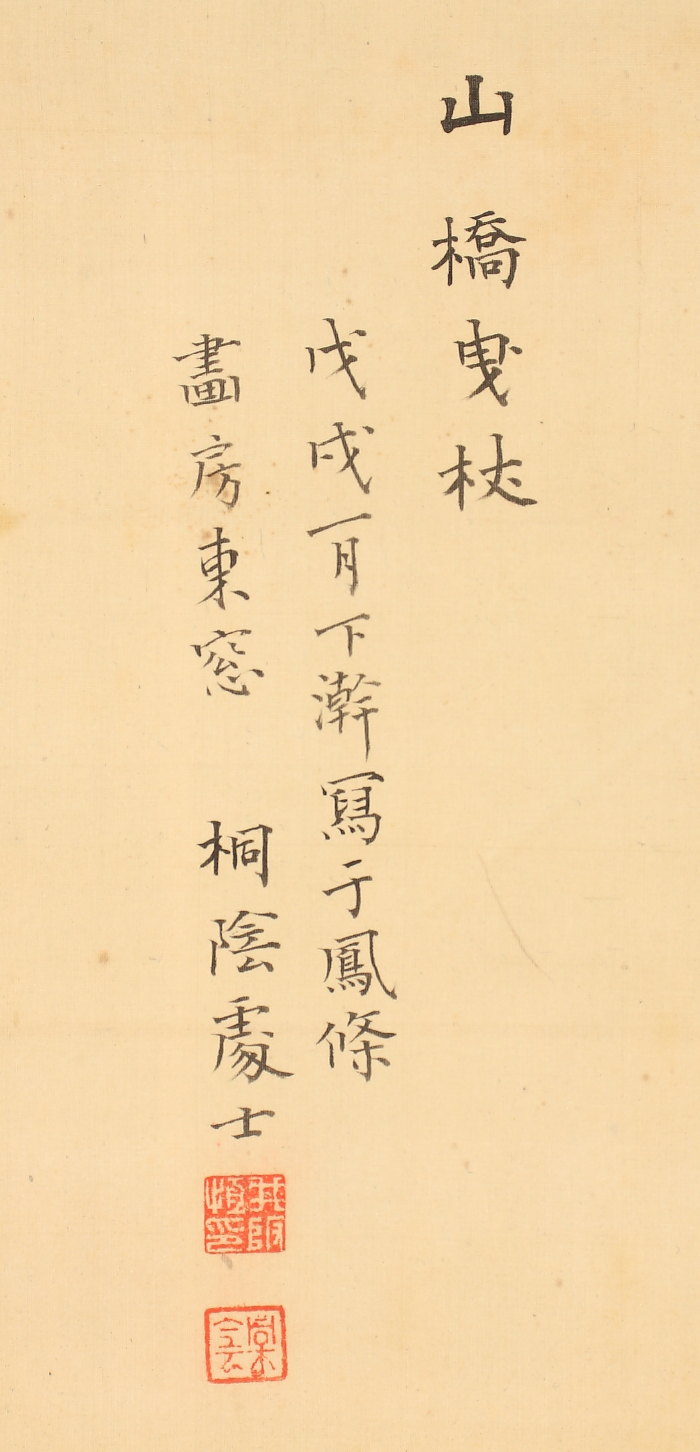 山橋曳杖
戊戌一月下澣寫于鳳條
畫房東窓　桐陰處士